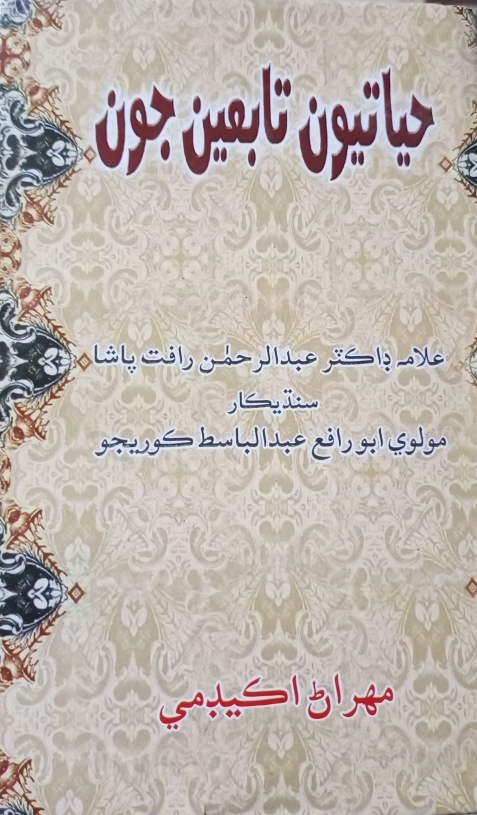 حياتيون تابعين جون
علامہ ڊاڪٽر عبدالرحمٰن رافت پاشا
سنڌيڪار
مولوي ابو رافع عبدالباسط ڪوريجو
مهراڻ اڪيڊمي